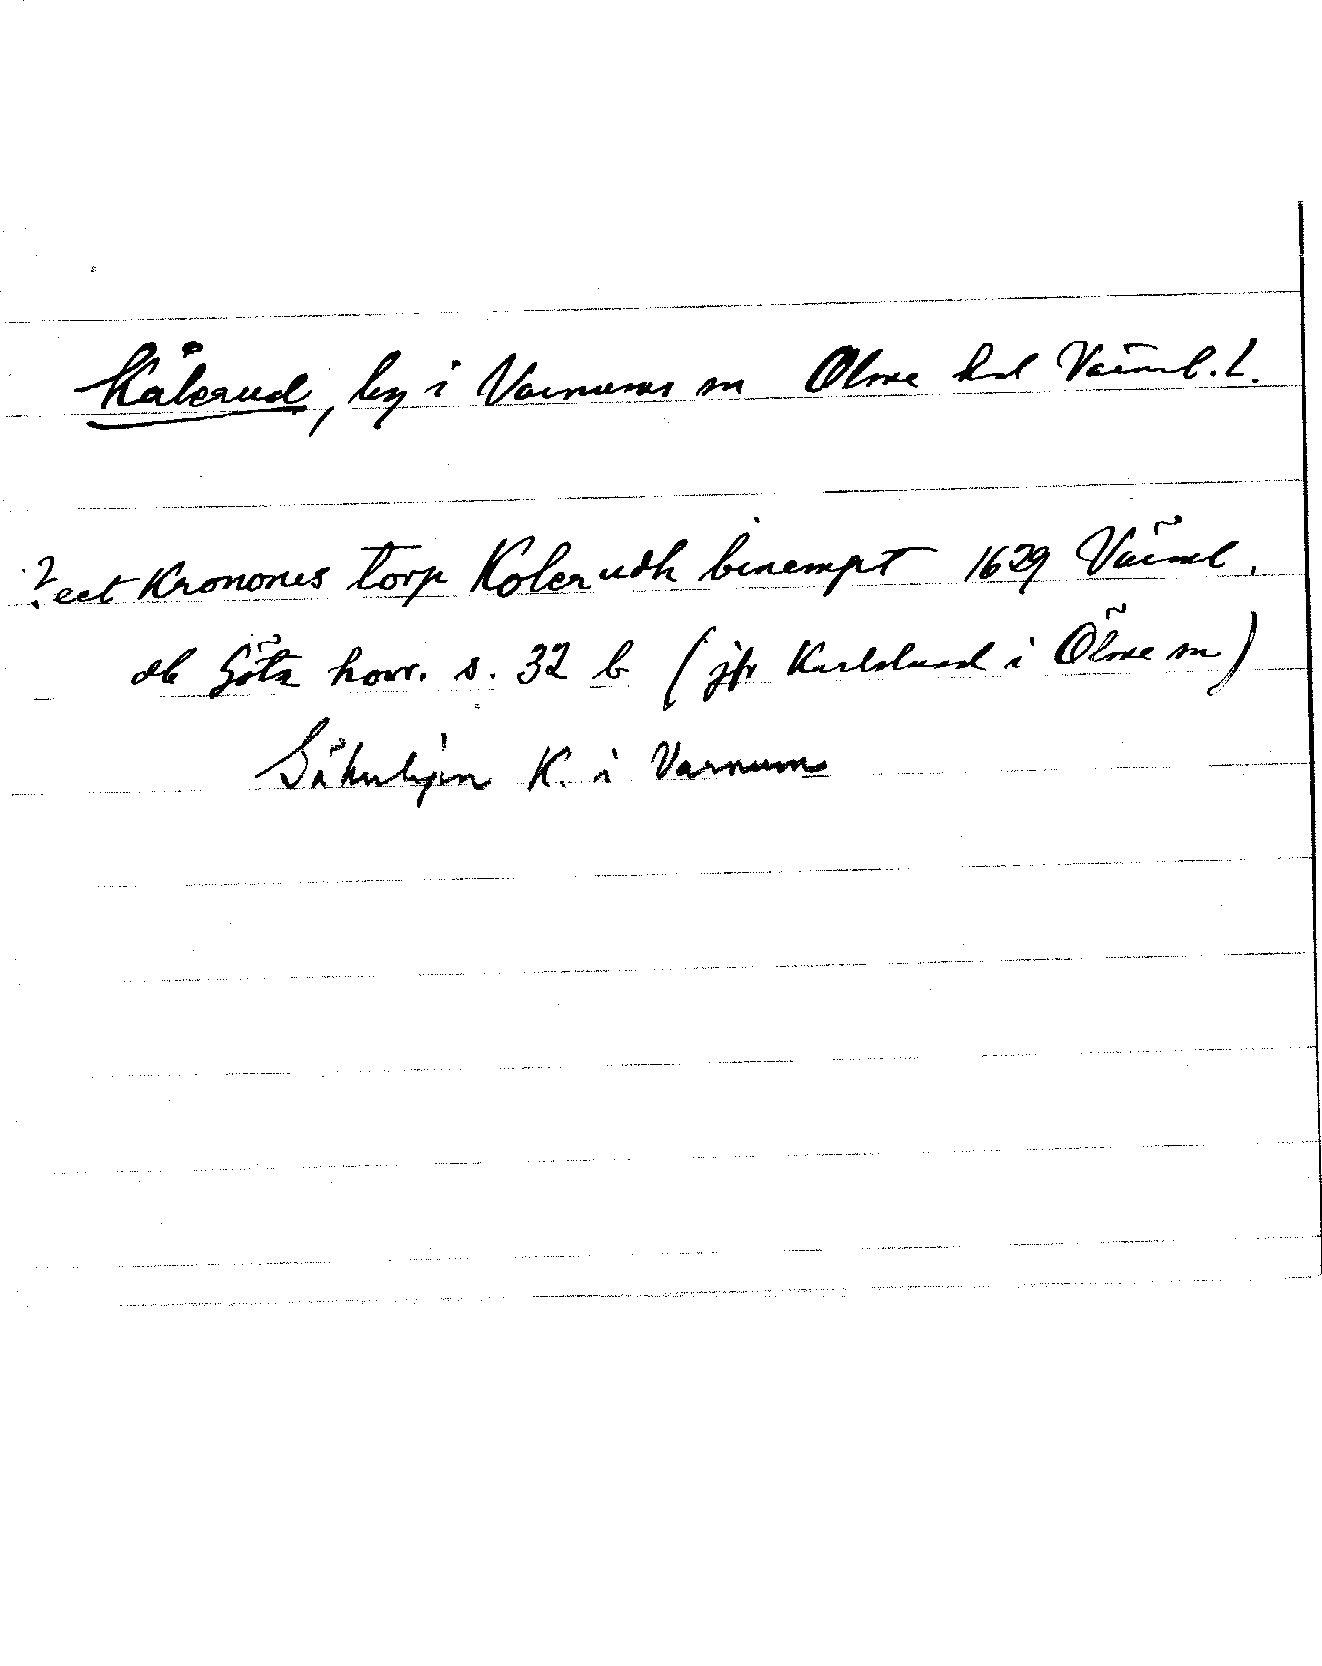 Kålerud, by i Varnums sn Ölme hd Värml. l.
? eet Kronones torp Kolerudh benempt 1629 Värml.
db Göta hovr. s. 32 b (jfr Karlslund i Ölme sn)
Säkerligen K. i Varnum